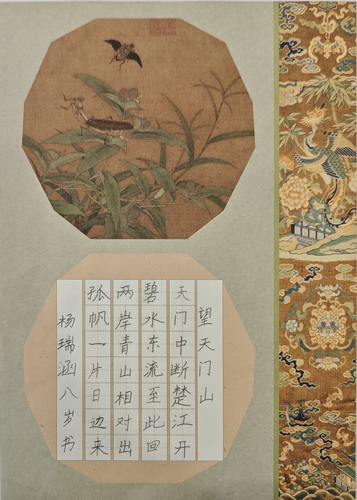 望天门山
天门中断楚江开
碧水东流至此回
两岸青山相对出
孤帆一片日边来
杨瑞涵八岁书